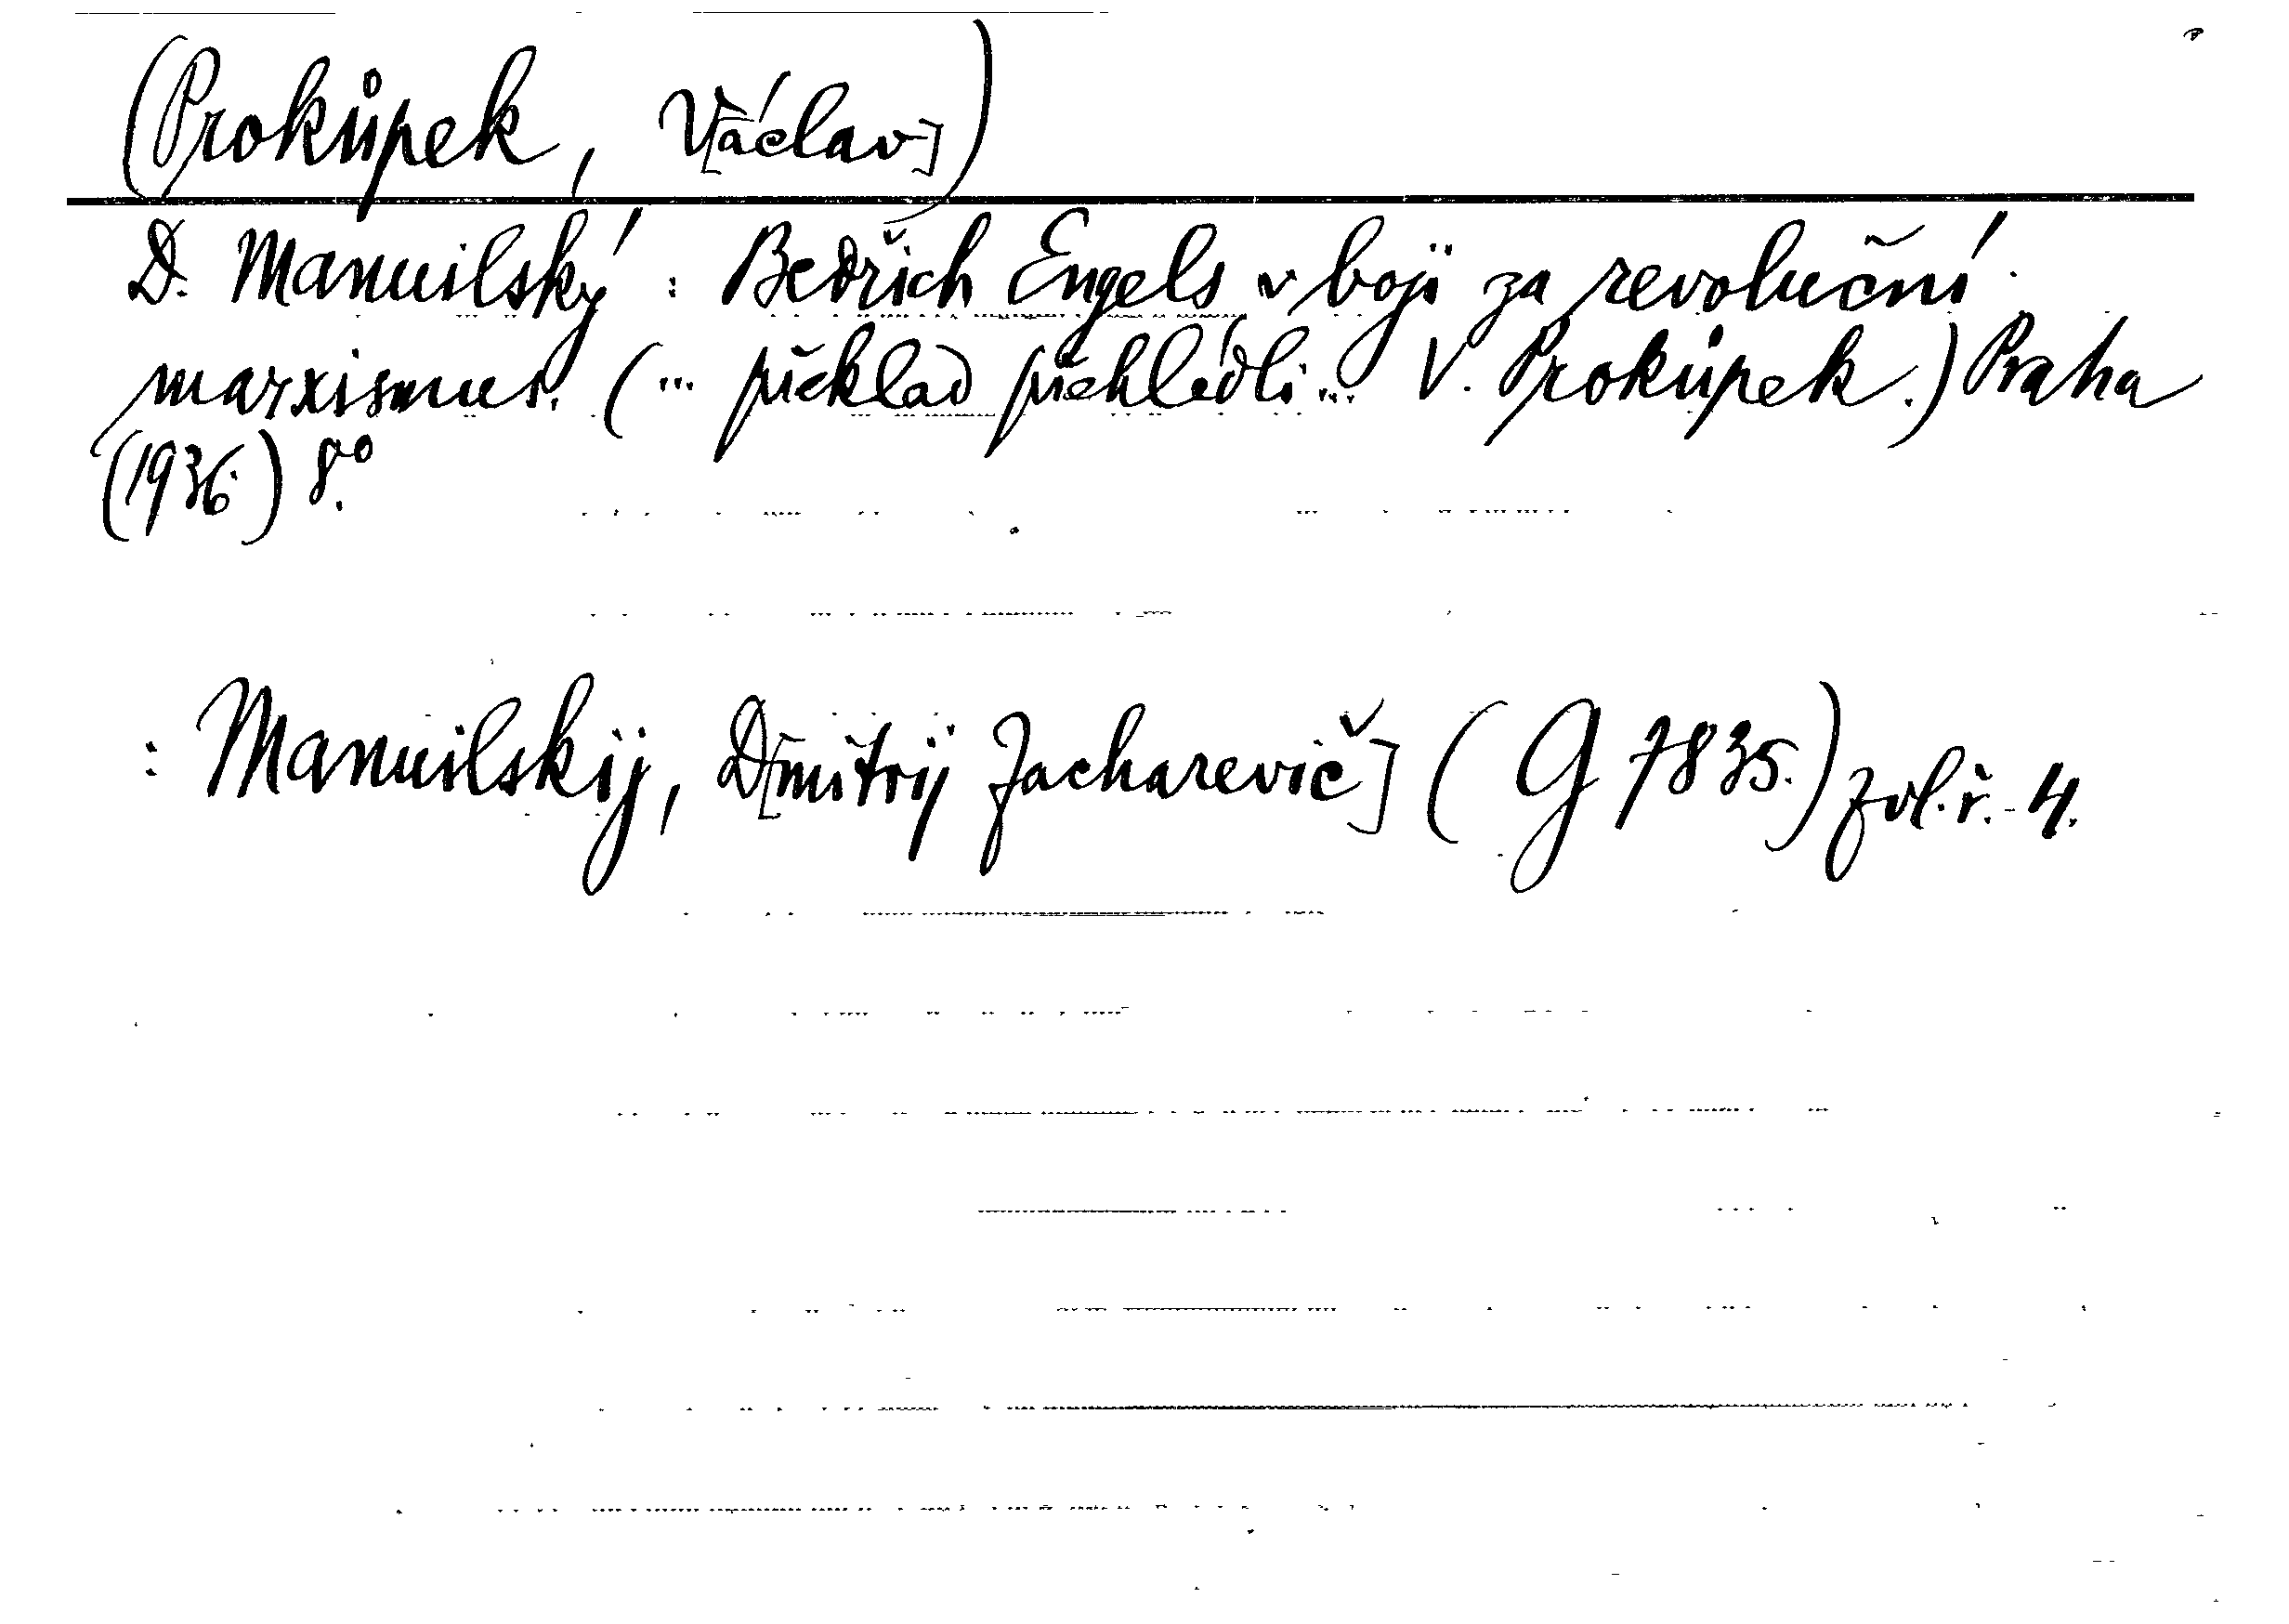 (Prokůpek, V[áclav])
D. Manuilský: Bedřich Engels v boji za revoluční
marxismus. (... překlad přehlédli... V. Prokůpek.) Praha
(1936.) 8.°
: Manuilskij, D[mitrij Zacharevič] (G 7835.) zvl. ř. - 4.